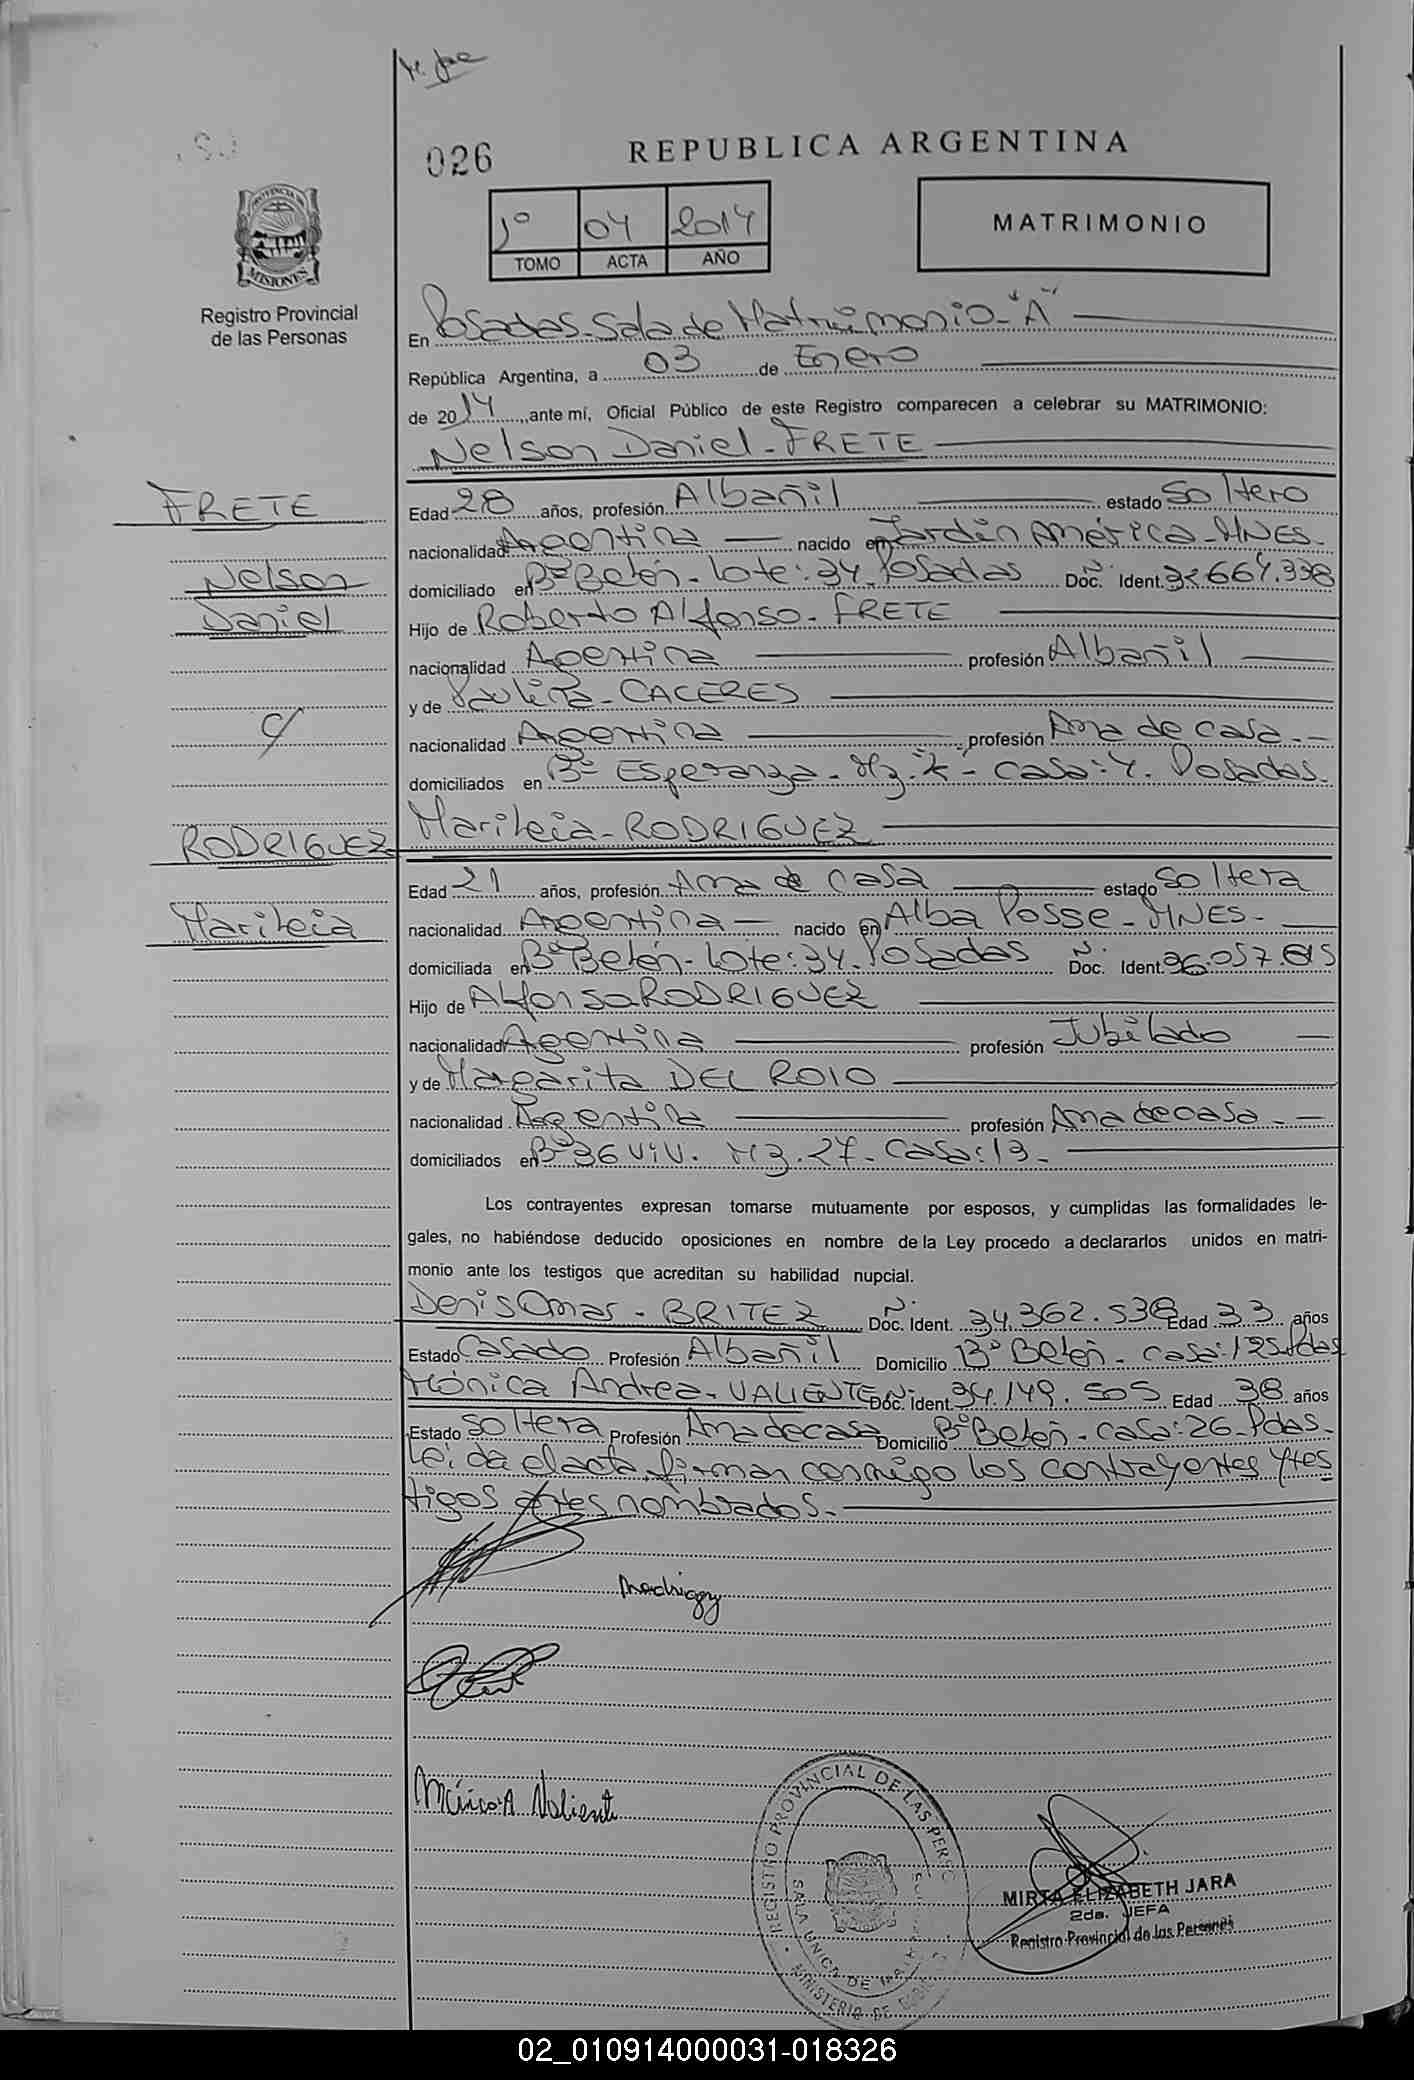 026
REPUBLICA ARGENTINA
1º 04 2014
TOMO ACTA AÑO
MATRIMONIO
PROVINCIA DE
MISIONES
Registro Provincial
de las Personas
En Posadas-Sala de Matrimonio-"A"
República Argentina, a 03 de Enero
de 2014, ante mí, Oficial Público de este Registro comparecen a celebrar su MATRIMONIO:
Nelson Daniel-FRETE
FRETE
Nelson
Daniel
c/
RODRIGUEZ
Marileia
Edad 28 años, profesión Albañil estado Soltero
nacionalidad Argentina nacido en Jardín América-MNES-
domiciliado en Bº Belén-Lote:34-Posadas Doc. Ident. 664.338
Hijo de Roberto Alfonso-FRETE
nacionalidad Argentina profesión Albañil
y de Paulina-CACERES
nacionalidad Argentina profesión Ama de casa.-
domiciliados en Bº Esperanza-Mz."K"-casa:4. Posadas-
Marileia-RODRIGUEZ
Edad 21 años, profesión Ama de casa estado Soltera
nacionalidad Argentina nacido en Alba Posse-MNES-
domiciliada en Bº Belén-Lote:34-Posadas Doc. Ident. 36.057.615
Hijo de Alfonso RODRIGUEZ
nacionalidad Argentina profesión Jubilado
y de Margarita DEL ROIO
nacionalidad Argentina profesión Ama de casa.-
domiciliados en Bº 36 Viv. Mz.27-casa:13-
Los contrayentes expresan tomarse mutuamente por esposos, y cumplidas las formalidades le-
gales, no habiéndose deducido oposiciones en nombre de la Ley procedo a declararlos unidos en matri-
monio ante los testigos que acreditan su habilidad nupcial.
Denis Omar-BRITEZ Doc. Ident. 34.362.538 Edad 33 años
Estado Casado Profesión Albañil Domicilio Bº Belén-casa:125-Pdas
Mónica Andrea-VALIENTE Doc. Ident. 34.149.505 Edad 38 años
Estado Soltera Profesión Ama de casa Domicilio Bº Belén-casa:26-Pdas-
Leída el acta, firman conmigo los contrayentes y tes
tigos antes nombrados.-
Mónica A Valiente
REGISTRO PROVINCIAL DE LAS PERSO
SALA UNICA DE
MINISTERIO DE
MIRTA ELIZABETH JARA
2da. JEFA
Registro Provincial de las Personas
02_010914000031-018326